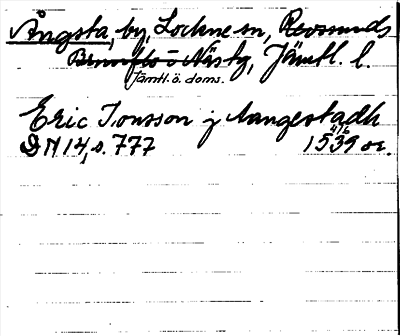 Ångsta, by, Lockne sn, Revsunds
Brunflo o Näs tg, Jämtl. l.
Jämtl. ö. doms.
Eric Jonsson j Aangestadh
DN 14, s. 777 4/6 1539 or.